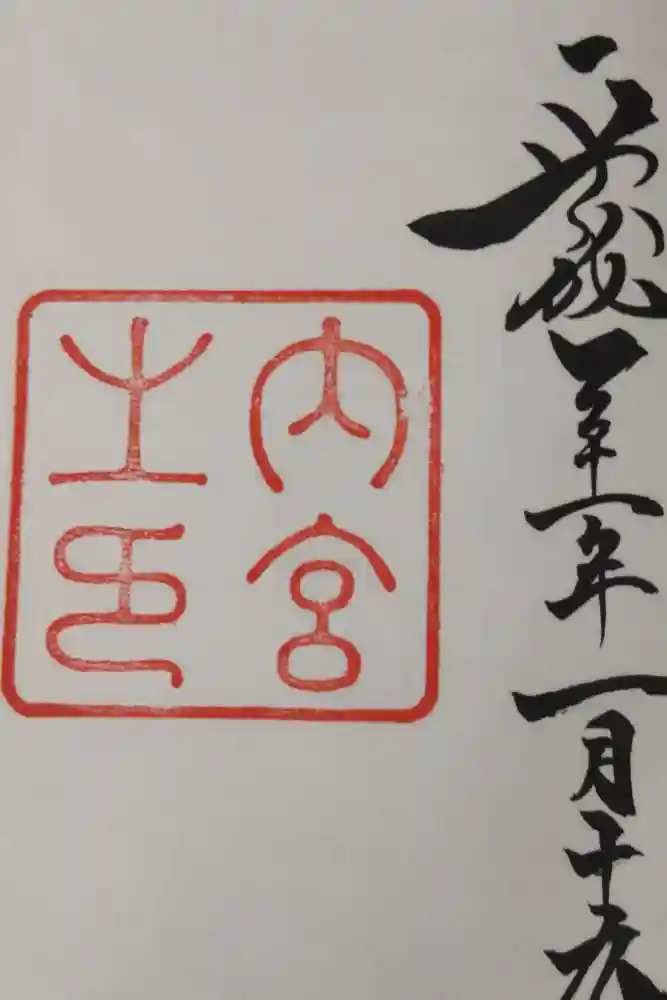 平成三十一年一月十六
内宮
之印